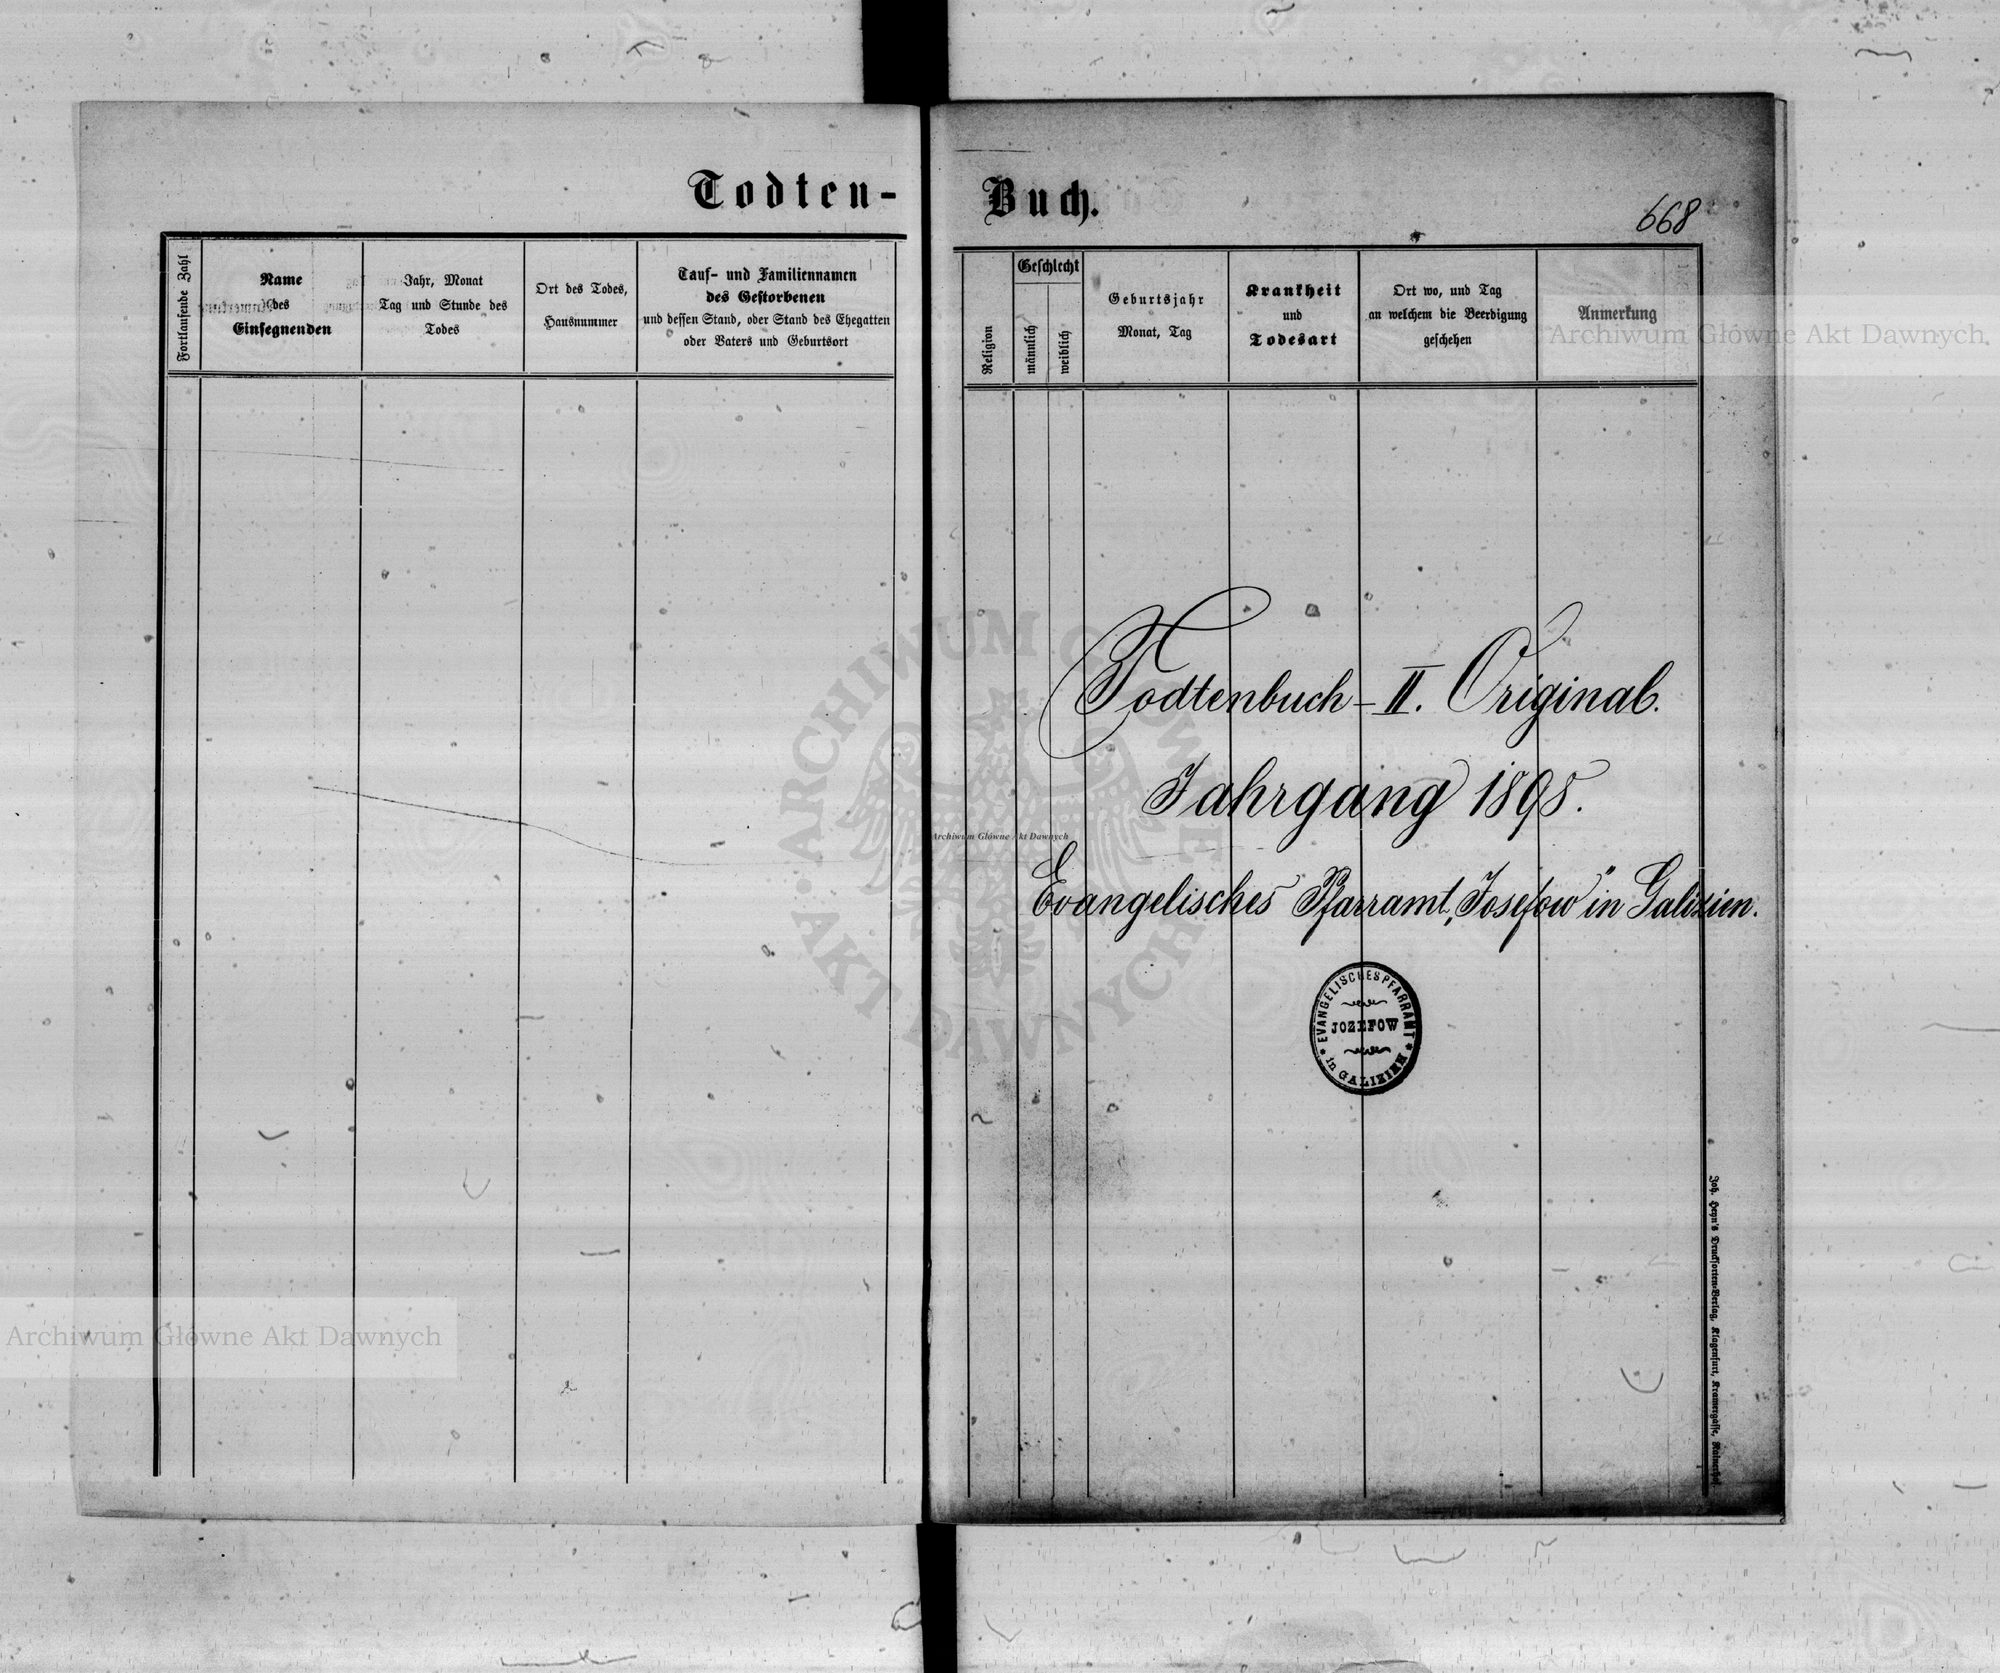 Todten-
Buch.
668
Fortlaufende Zahl
Name
des
Einsegnenden
Jahr, Monat
Tag und Stunde des
Todes
Ort des Todes,
Hausnummer
Tauf- und Familiennamen
des Gestorbenen
und dessen Stand, oder Stand des Ehegatten
oder Vaters und Geburtsort
Religion
Geschlecht
männlich
weiblich
Geburtsjahr
Monat, Tag
Krankheit
und
Todesart
Ort wo, und Tag
an welchem die Beerdigung
geschehen
Anmerkung
Archiwum Główne Akt Dawnych
Todtenbuch - II. Original.
Jahrgang 1898.
Archiwum Główne Akt Dawnych
ARCHIWUM GŁÓWNE AKT DAWNYCH
Evangelisches Pfarramt „Josefow" in Galizien.
EVANGELISCHES PFARRAMT
JOZEFOW
in GALIZIEN
Archiwum Główne Akt Dawnych
Joh. Heyn's Drucksorten-Verlag, Klagenfurt, Kramergasse,